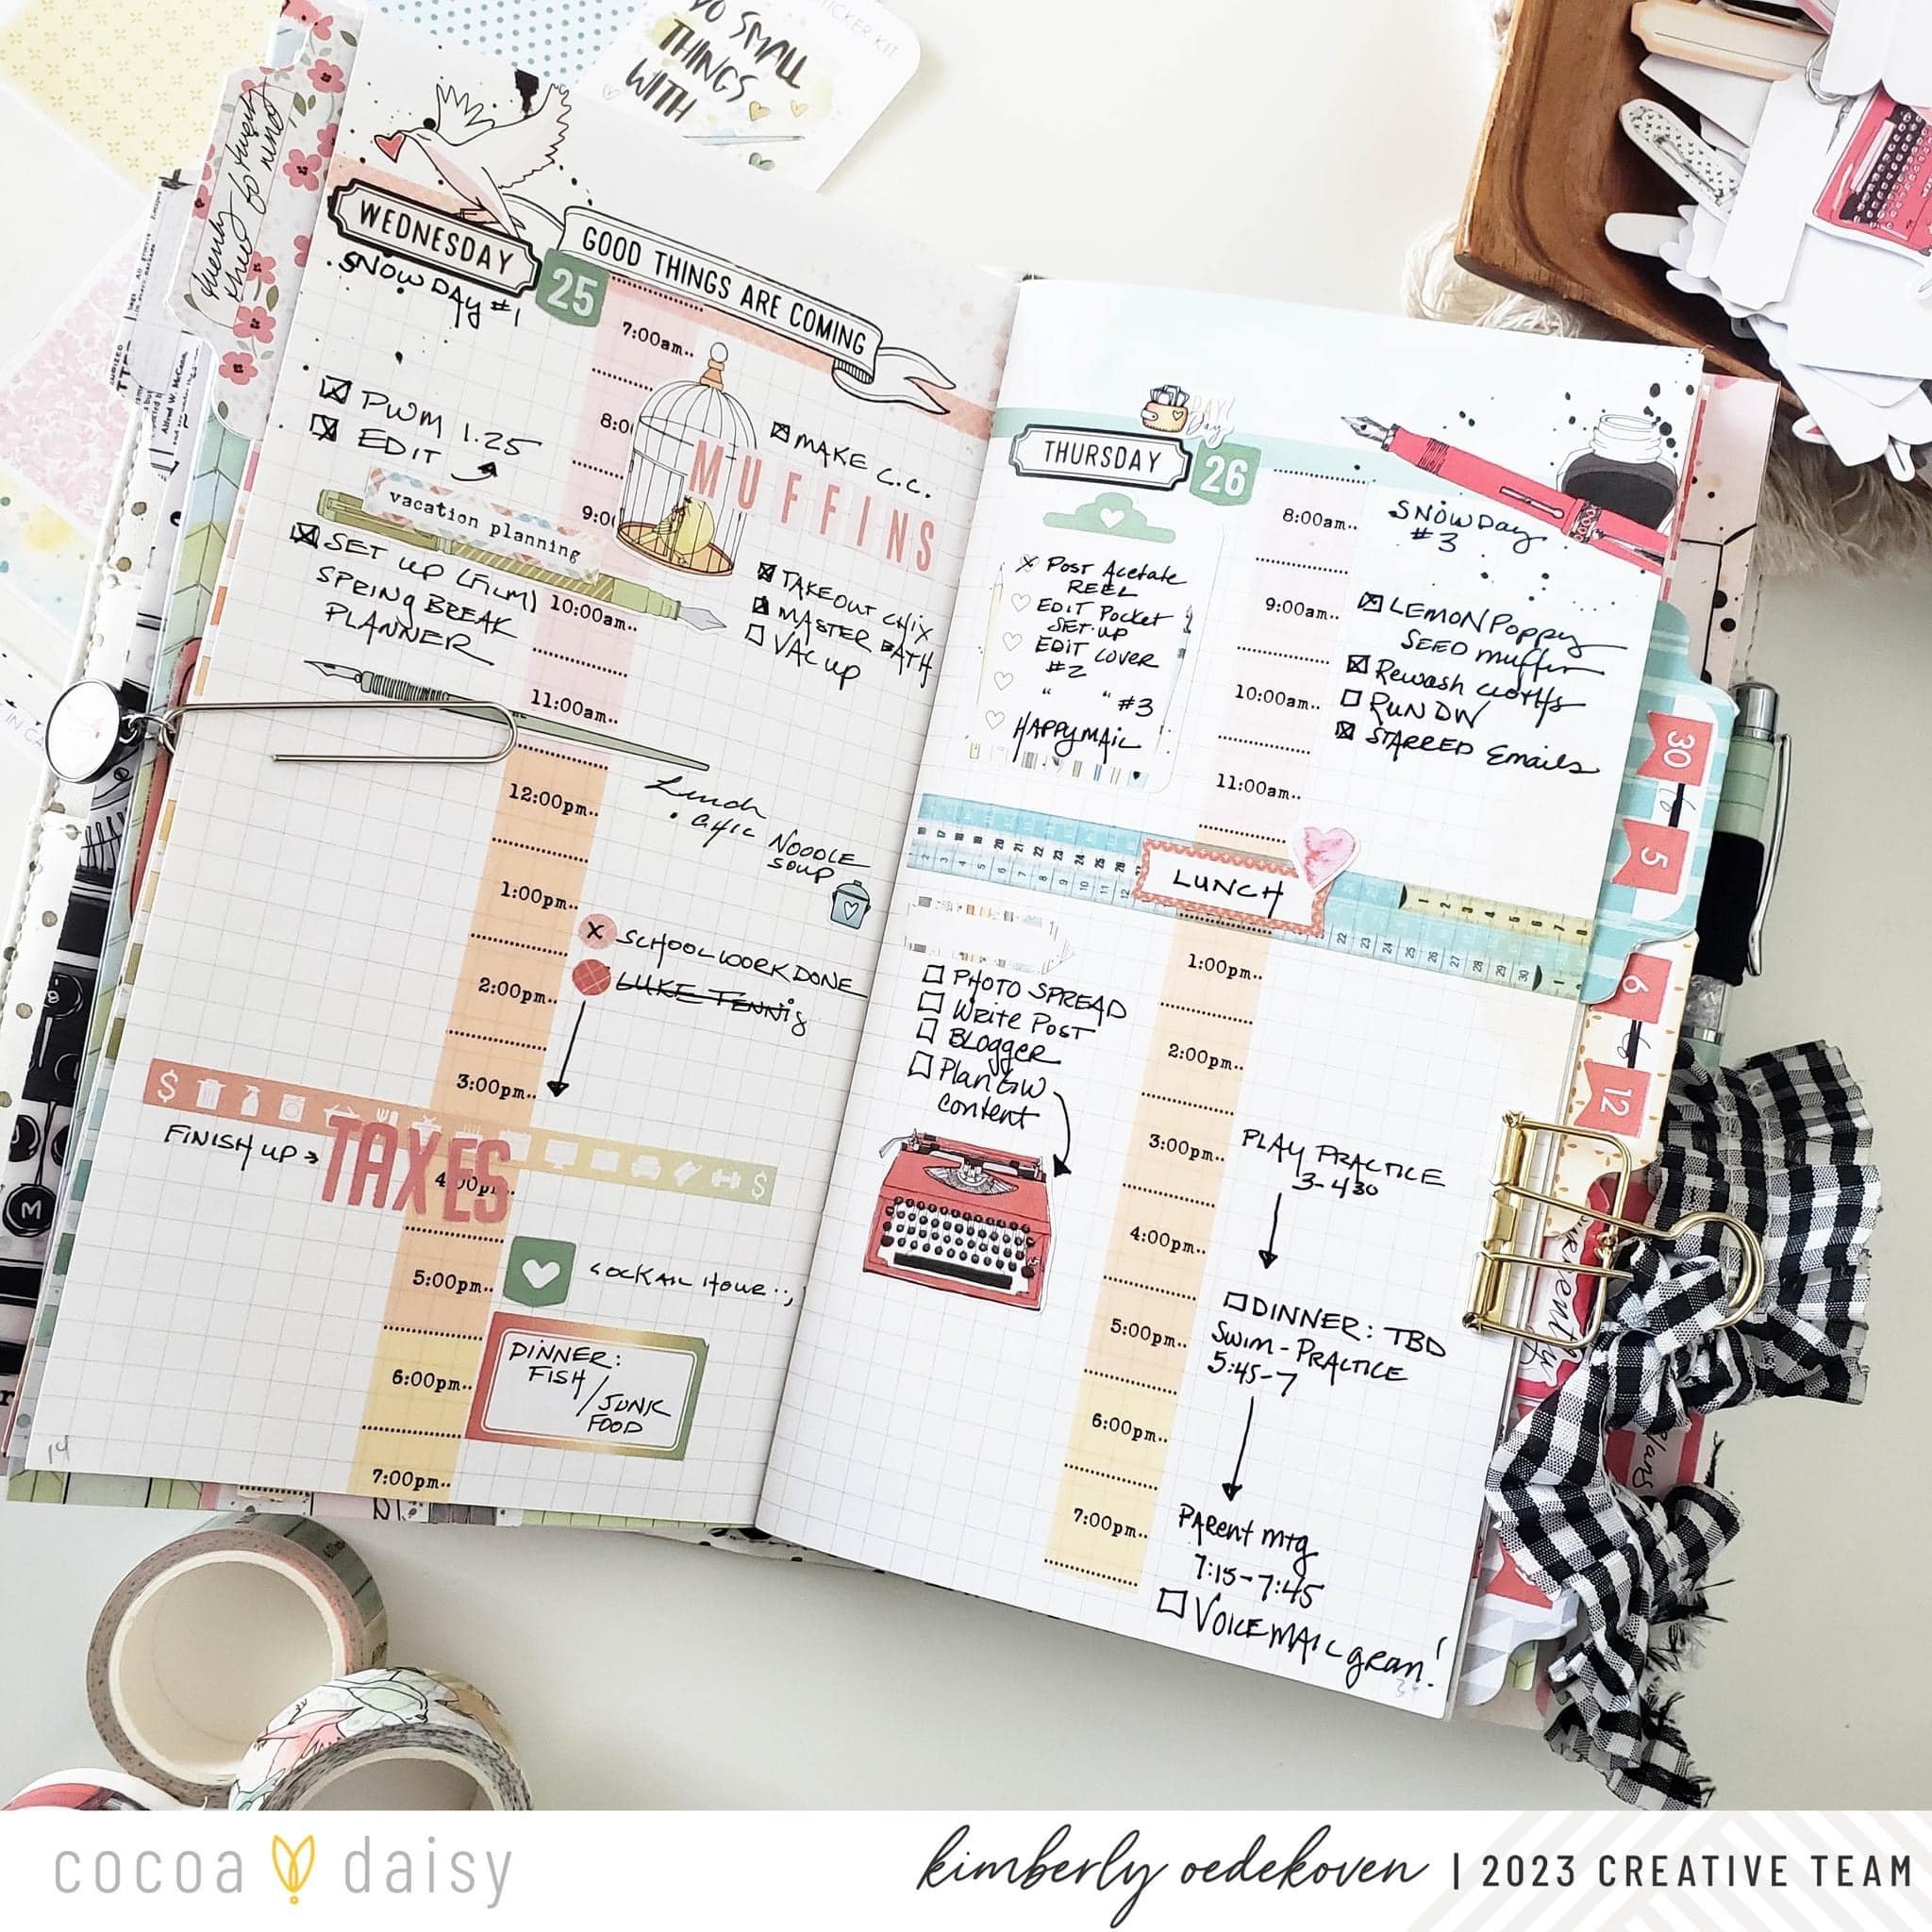 DO SMALL
THINGS
WITH
WEDNESDAY
25
GOOD THINGS ARE COMING
SNOW DAY #1
PWM 1.25
EDIT
vacation planning
SET UP (FILM)
SPRING BREAK
PLANNER
7:00am
MAKE C.C.
MUFFINS
TAKEOUT CHIX
MASTER BATH
VAC UP
10:00am
11:00am
12:00pm
Lunch
. CHIC NOODLE
SOUP
1:00pm
X SCHOOLWORK DONE
2:00pm
LUKE TENNIS
3:00pm
FINISH UP → TAXES
5:00pm
COCKTAIL HOUR
6:00pm
DINNER:
FISH /
JUNK
FOOD
7:00pm
14
THURSDAY
26
8:00am
SNOW DAY
#3
POST Acetate
REEL
EDIT POCKET
SET-UP
EDIT COVER
#2
" " #3
HAPPYMAIL
9:00am
LEMON POPPY
SEED muffin
Rewash clothes
RUN DW
STARRED Emails
10:00am
11:00am
LUNCH
PHOTO SPREAD
Write POST
Blogger
Plan GW
content
1:00pm
2:00pm
3:00pm
PLAY PRACTICE
3-430
4:00pm
5:00pm
DINNER: TBD
SWIM-PRACTICE
5:45-7
6:00pm
7:00pm
PARent mtg
7:15-7:45
VOICEMAIL gran!
30
5
6
12
M
cocoa daisy
kimberly oedekoven | 2023 CREATIVE TEAM